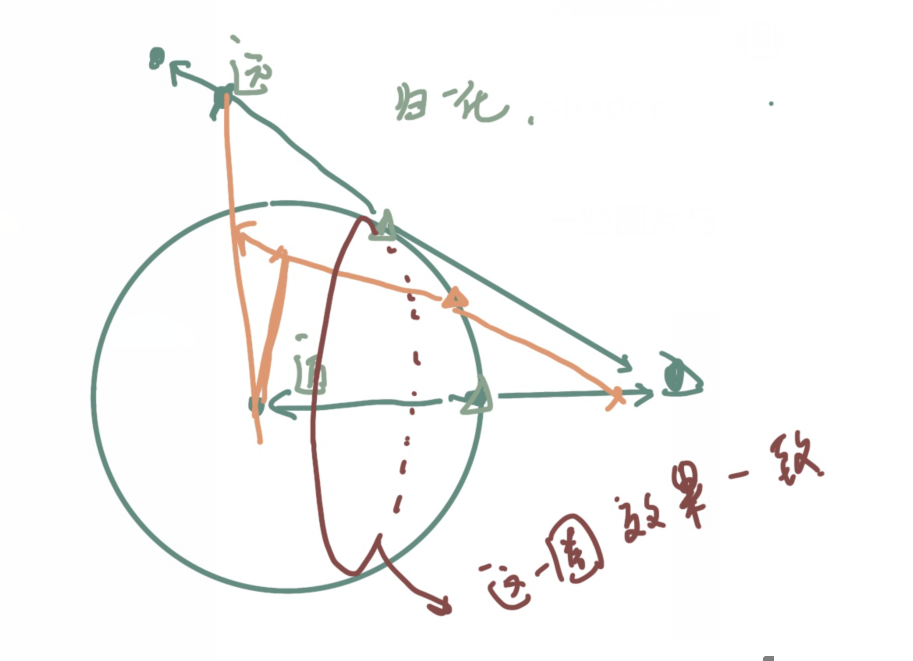 远
归一化.
近
这一圈效果一致